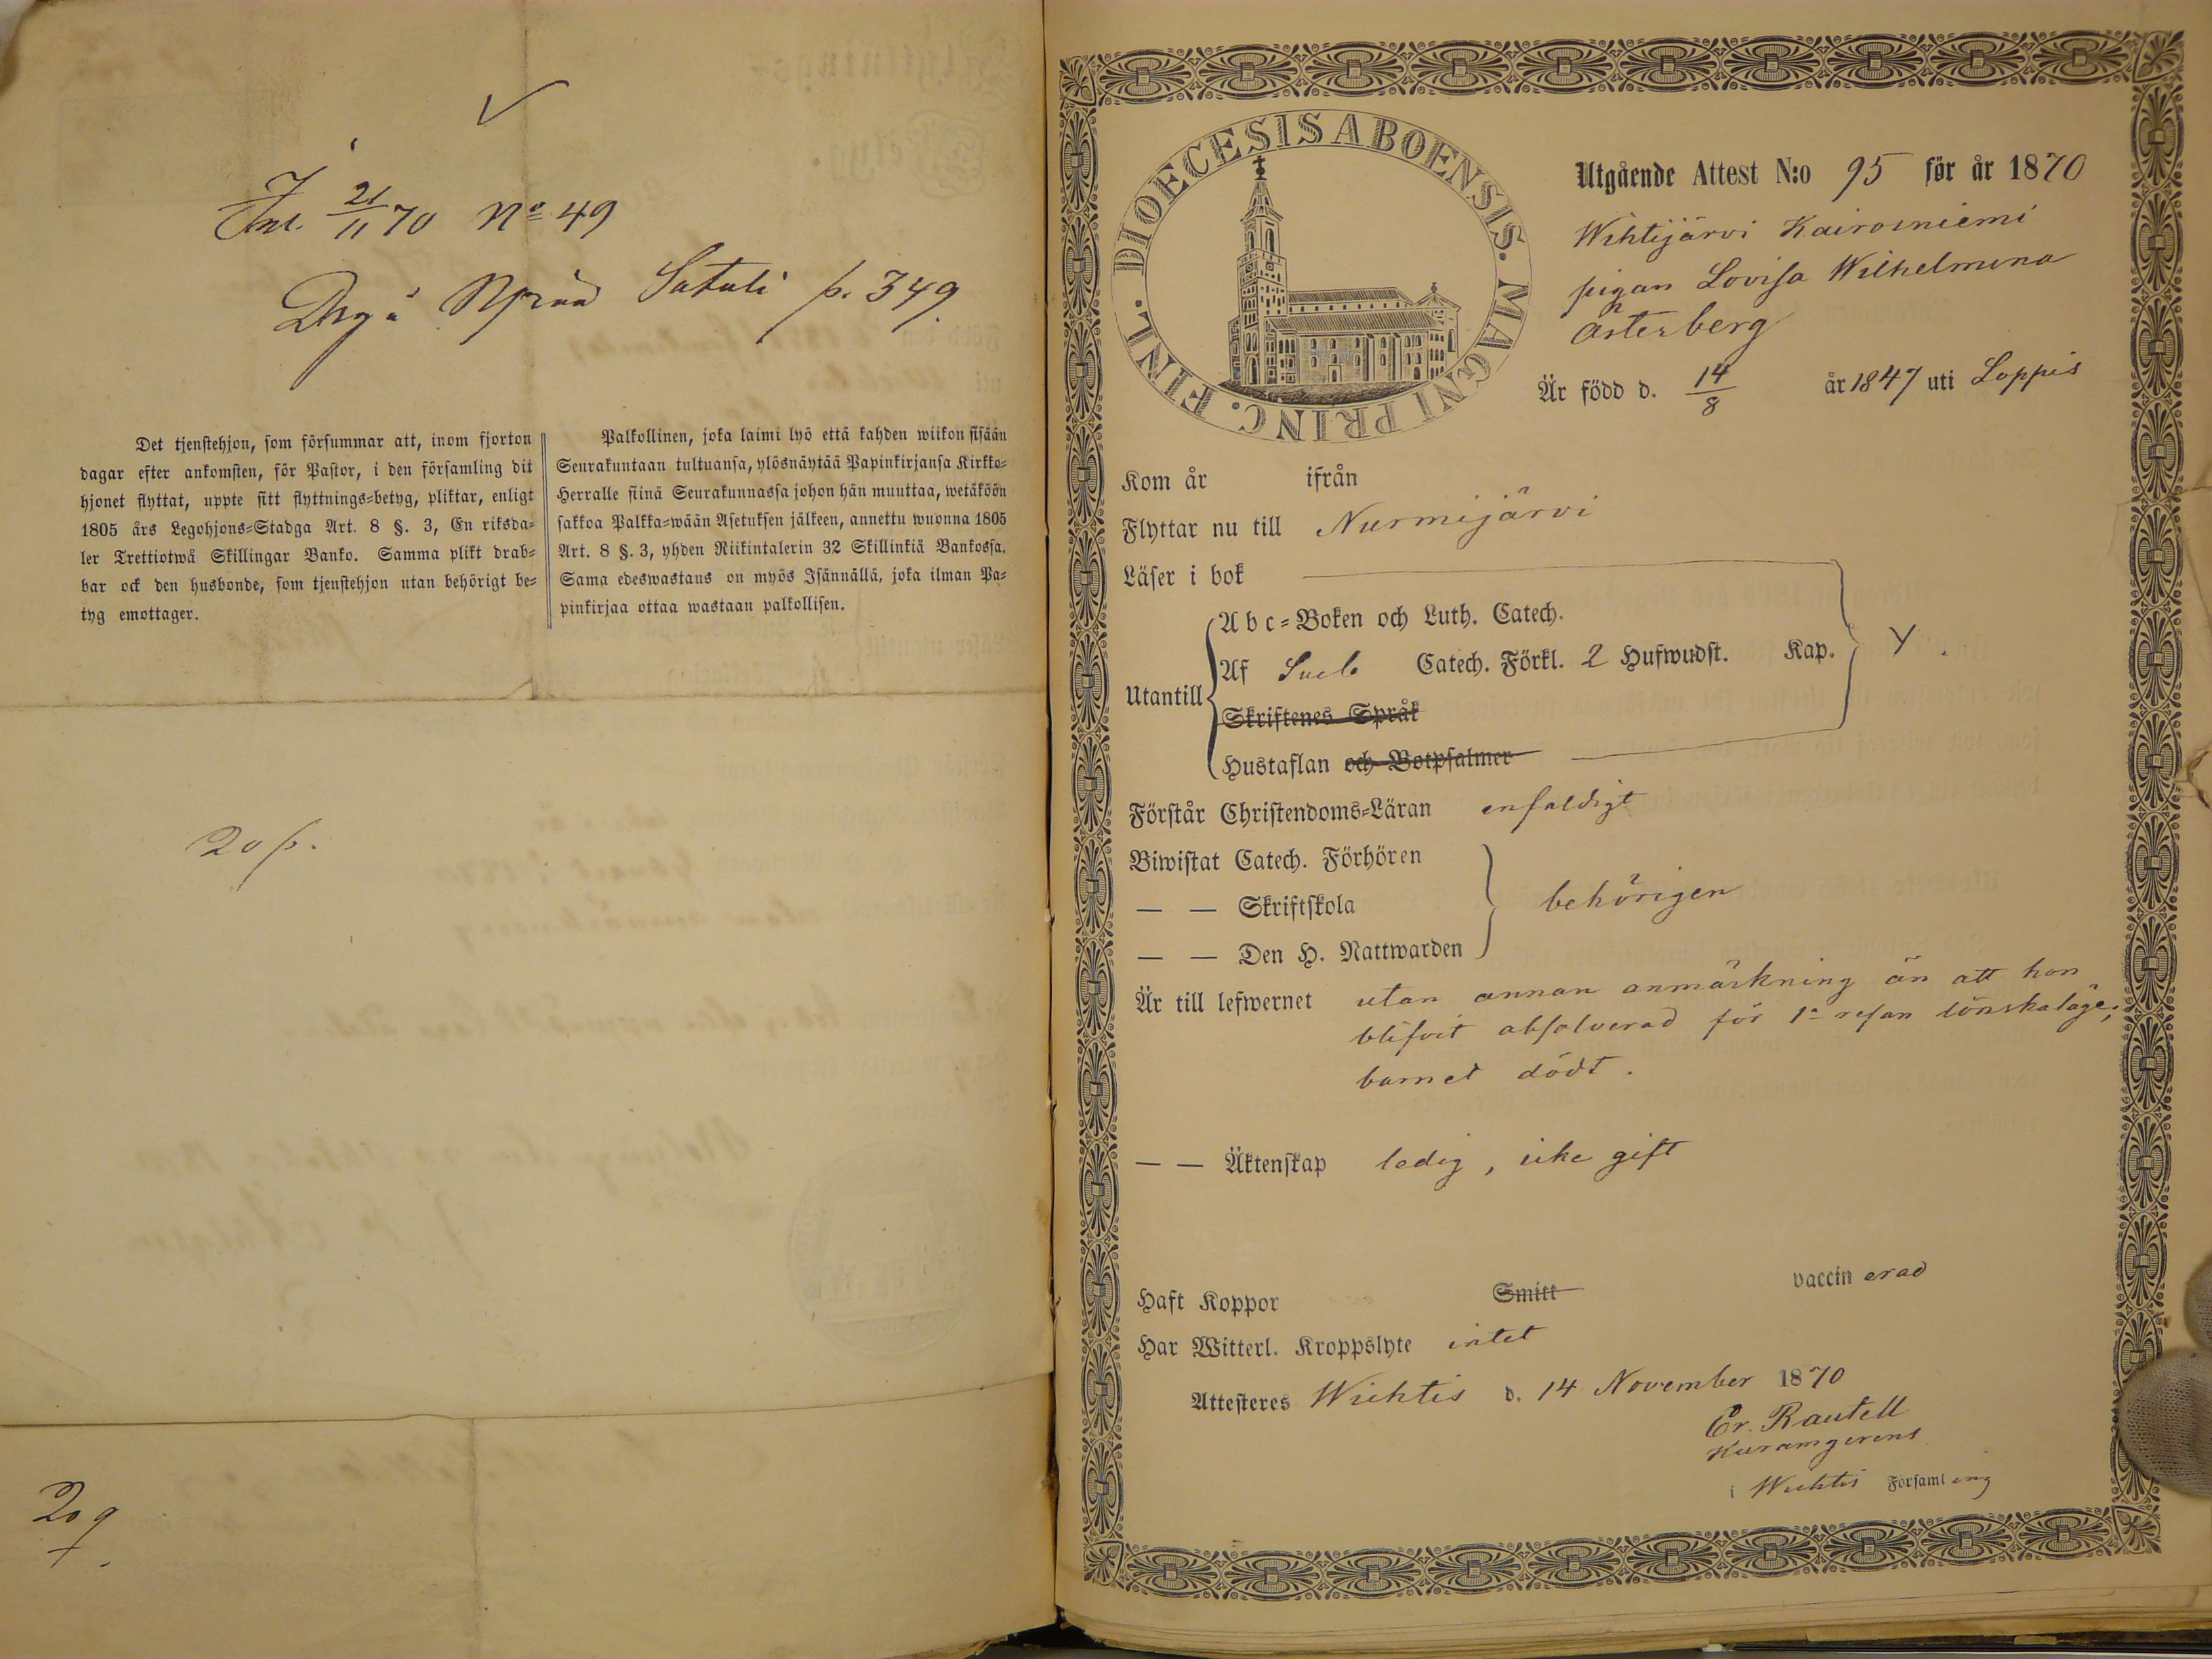 Inl. 21/11 70 No 49
Satuli p. 349
Det tjenstehjon, som försummar att, inom fjorton
dagar efter ankomsten, för Pastor, i den församling dit
hjonet flyttat, uppte sitt flyttnings=betyg, pliktar, enligt
1805 års Legohjons=Stadga Art. 8 §. 3, En riksda=
ler Trettiotwå Skillingar Banko. Samma plikt drab=
bar ock den husbonde, som tjenstehjon utan behörigt be=
tyg emottager.
Palkollinen, joka laimi lyö että kahden wiikon sisään
Seurakuntaan tultuansa, ylösnäytää Papinkirjansa Kirkko=
Herralle siinä Seurakunnassa johon hän muuttaa, wetäköön
sakkoa Palkka=wään Asetuksen jälkeen, annettu wuonna 1805
Art. 8 §. 3, yhden Riikintalerin 32 Skillinkiä Bankossa.
Sama edeswastaus on myös Isännällä, joka ilman Pa=
pinkirjaa ottaa wastaan palkollisen.
20 p.
DIOECESIS ABOENSIS. MAGNI PRINC. FINL.
Utgående Attest N:o 95 för år 1870
Wihtijärvi Kairoinniemi
pigan Lovisa Wilhelmina
Österberg
Är född d. 14/8 år 1847 uti Loppis
Kom år ifrån
Flyttar nu till Nurmijärvi
Läser i bok
Utantill
Abc=Boken och Luth. Catech.
Af Sveb Catech. Förkl. 2 Hufwudst. Kap. Y.
Skriftenes Språk
Hustaflan och Botpsalmer
Förstår Christendoms=Läran enfaldigt
Biwistat Catech. Förhören
— — Skriftskola behörigen
— — Den H. Nattwarden
Är till lefwernet utan annan anmärkning än att hon
blifvit absolverad för 1a resan lönskaläge;
barnet dödt.
— — Äktenskap ledig, icke gift
Haft Koppor Smitt vaccinerad
Har Witterl. Kroppslyte intet
Attesteras Wichtis d. 14 November 1870
Er. Rautell
Kuramgerens
i Wichtis Församling